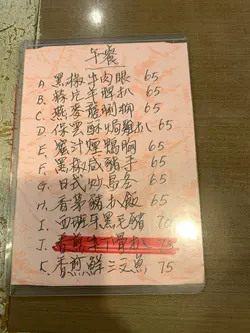 午餐
A. 黑椒牛肉眼 65
B. 蒜片羊鞍扒 65
C. 燕麥豬脷柳 65
D. 保雲酥焗雞扒 65
E. 蜜汁煙鴨胸 65
F. 黑椒咸豬手 65
G. 日式炒烏冬 65
H. 香茅豬扒飯 65
I. 西班牙黑毛豬 70
J. 香煎牛仔骨扒
K. 香煎鮮三文魚 75